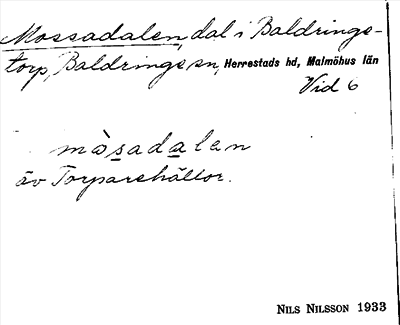 Mossadalen, dal i Baldrings-
torp, Baldringe sn, Herrestads hd, Malmöhus län
Vid 6
mòsadalen
äv Torparehållor.
NILS NILSSON 1933